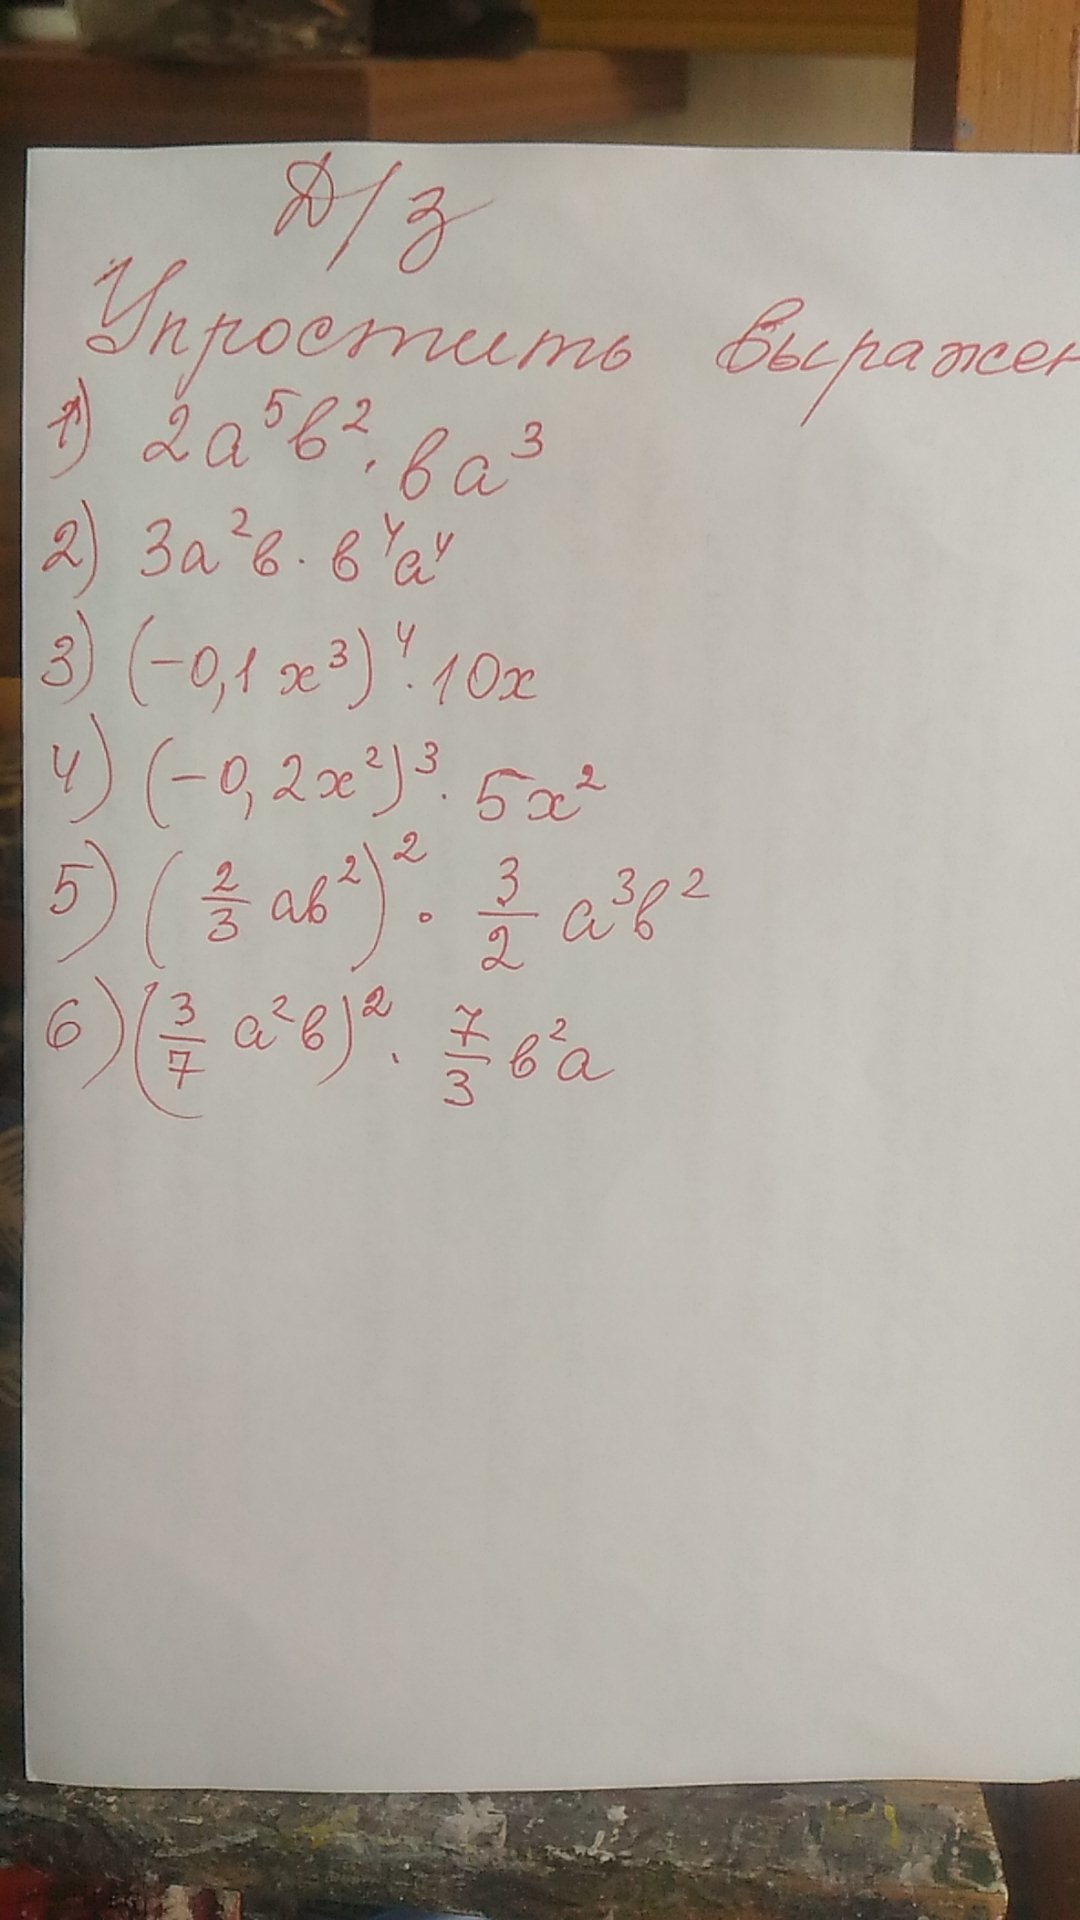 Д/з
Упростить выражен
1) 2a⁵b² · ba³
2) 3a²b · b⁴a⁴
3) (-0,1x³)⁴ · 10x
4) (-0,2x²)³ · 5x²
5) (2/3 ab²)² · 3/2 a³b²
6) (3/7 a²b)² · 7/3 b²a